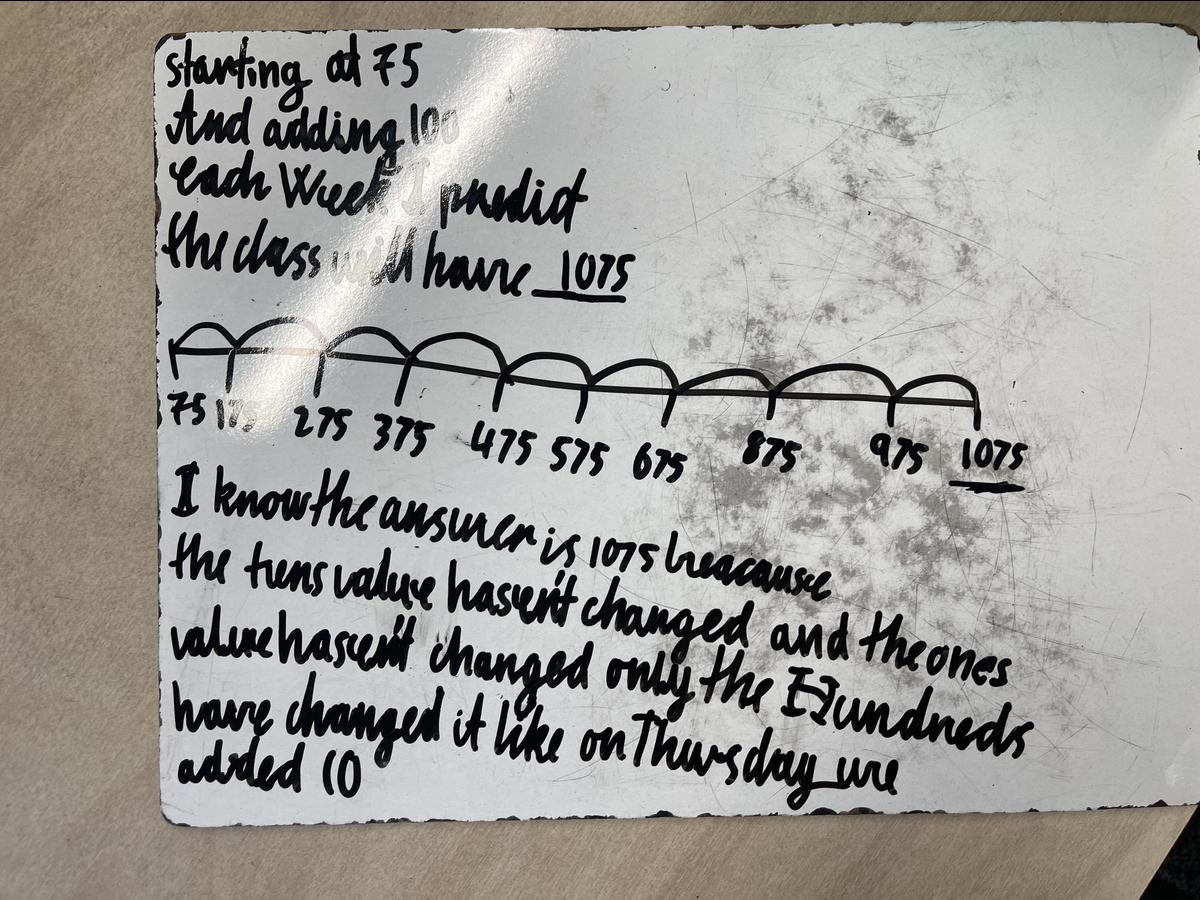 starting at 75
And adding 100
each Week I predict
the class will have 1075
75 175 275 375 475 575 675 875 975 1075
I know the answer is 1075 beacause
the tens value hasen't changed and the ones
value hasen't changed only the Hundreds
have changed it like on Thursday we
added 10